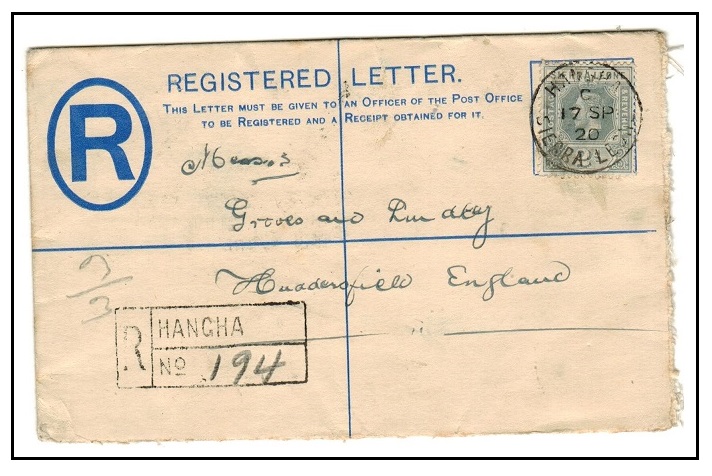 R
REGISTERED LETTER.
THIS LETTER MUST BE GIVEN TO AN OFFICER OF THE POST OFFICE
TO BE REGISTERED AND A RECEIPT OBTAINED FOR IT.
SIERRA LEONE
& REVENUE
HANGHA
C
17 SP
20
SIERRA LEONE
Messrs
Groves and Lindley
Huddersfield England
R HANGHA
No 194